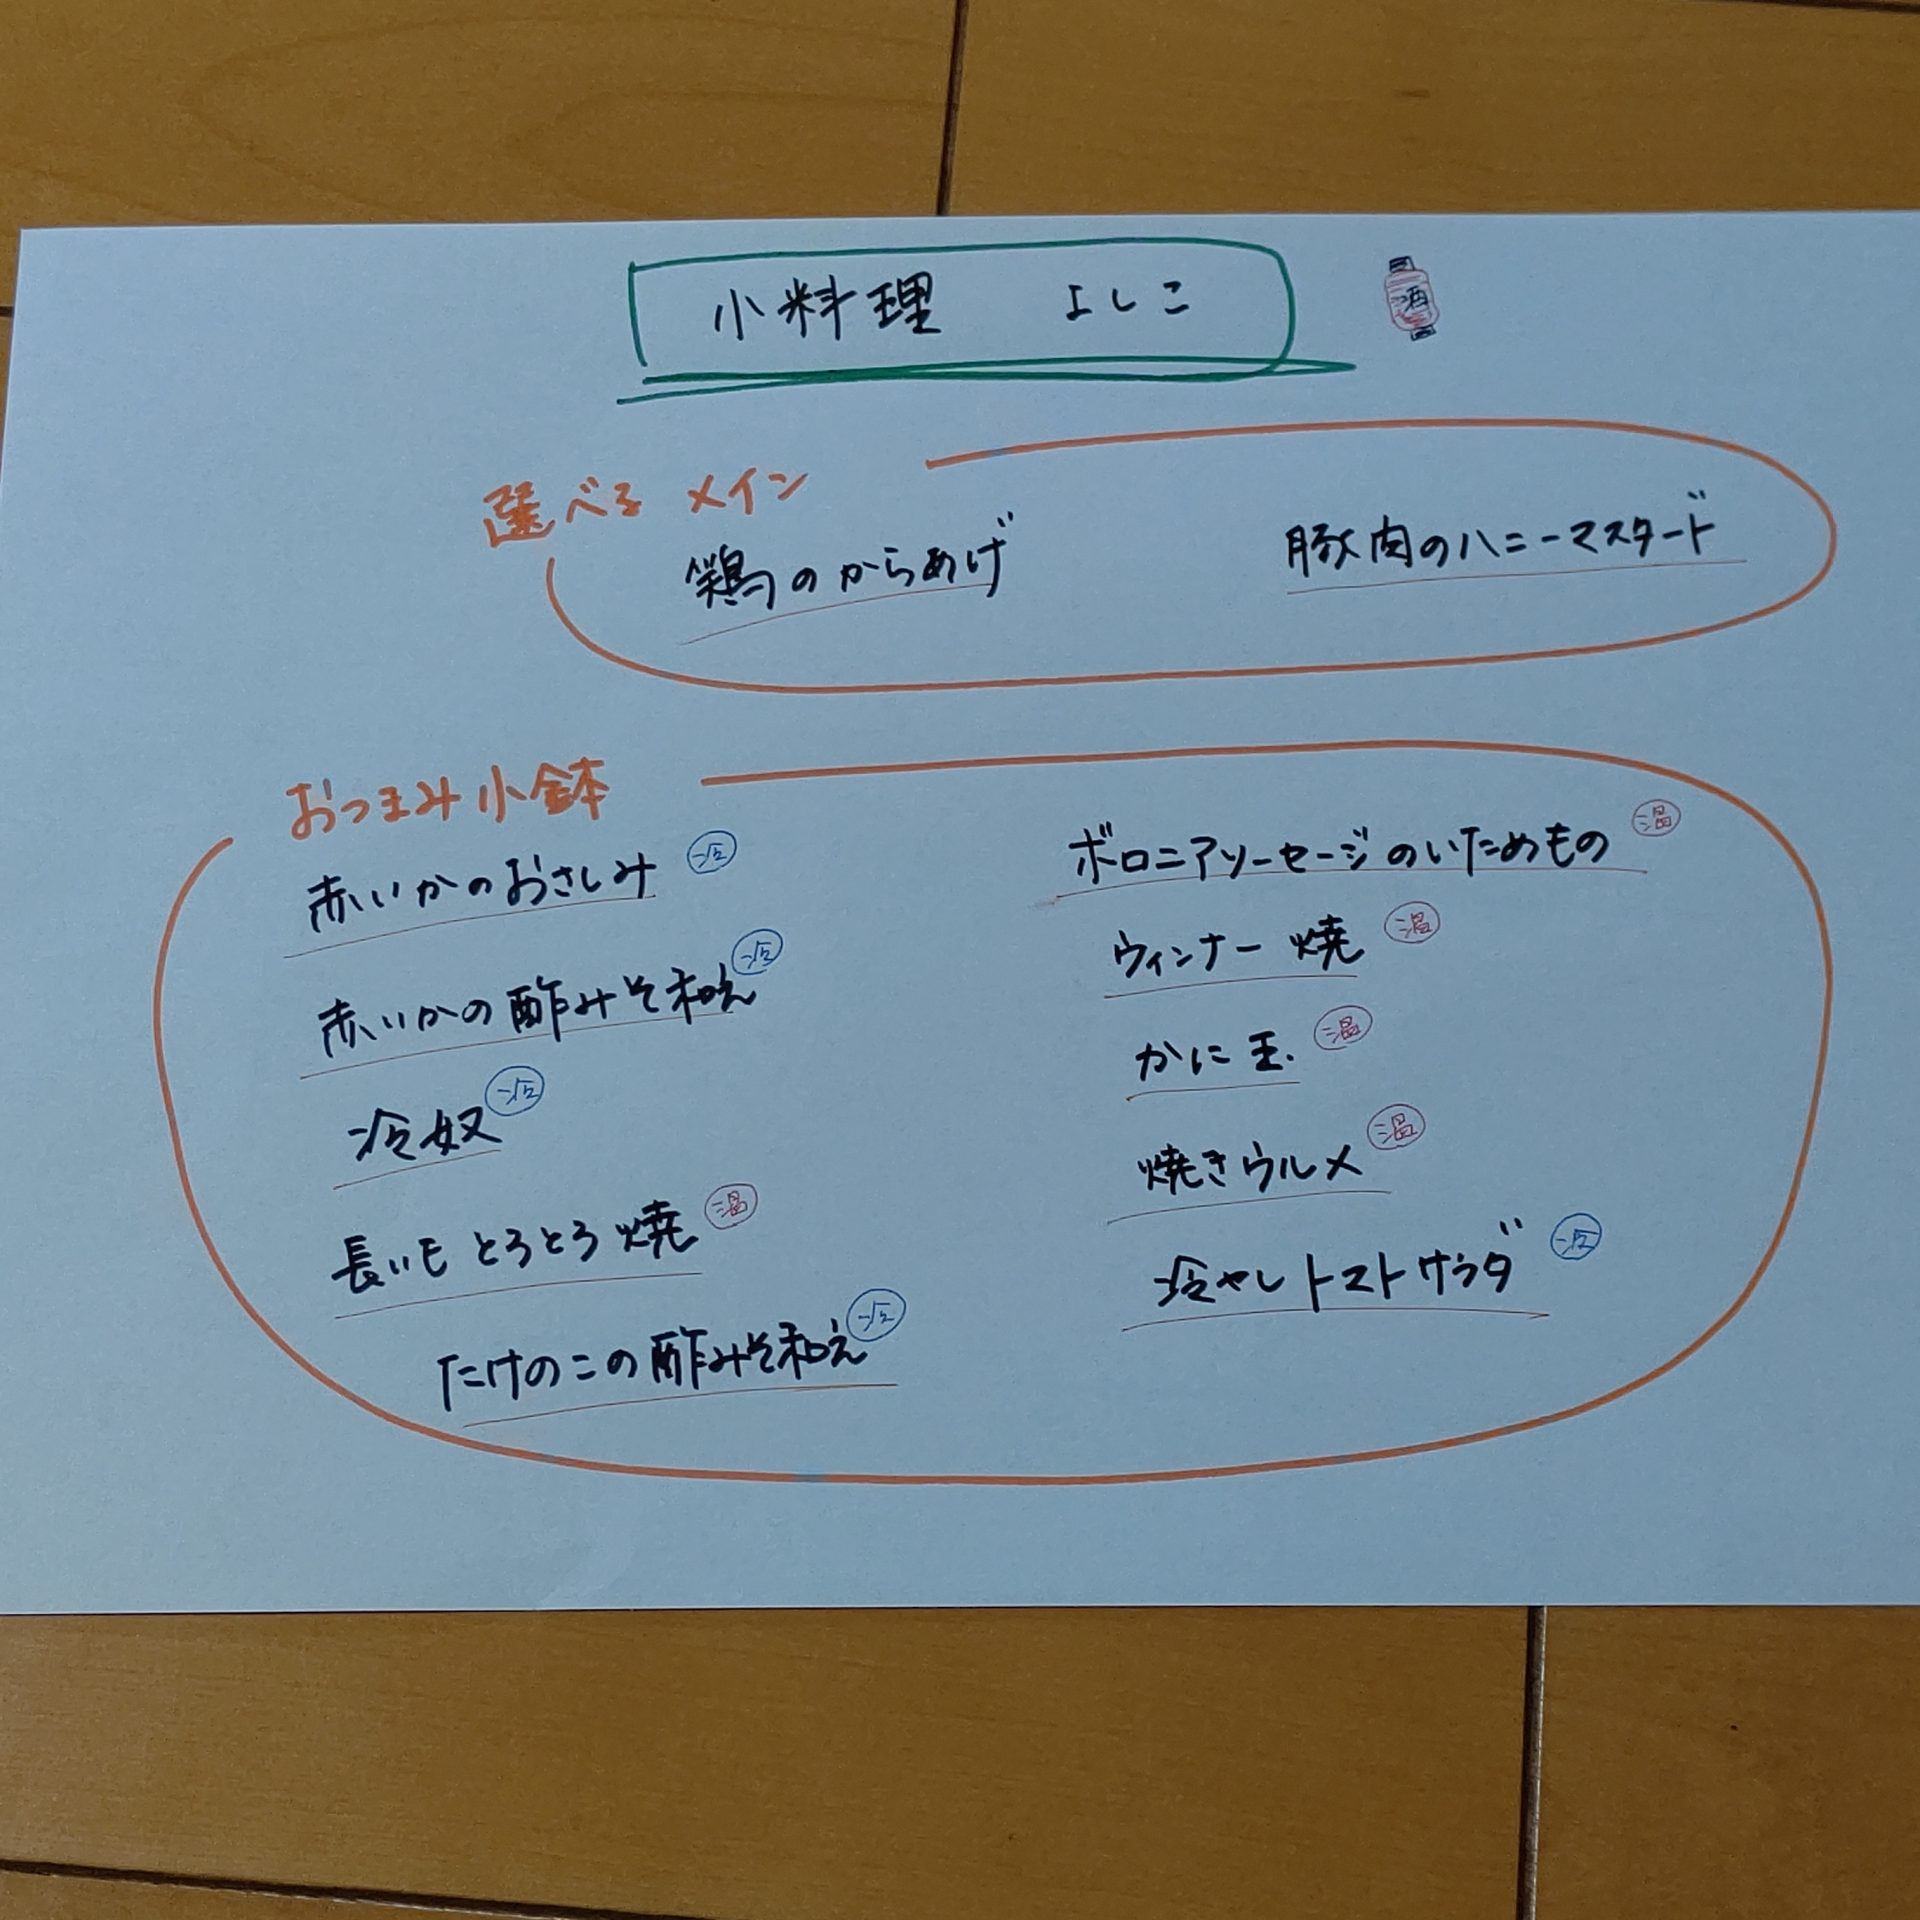 小料理 よしこ
酒
選べるメイン
鶏のからあげ
豚肉のハニーマスタード
おつまみ小鉢
赤いかのおさしみ 冱
赤いかの酢みそ和え 冱
冷奴 冱
長いもとろとろ焼 温
たけのこの酢みそ和え 冱
ボロニアソーセージのいためもの 温
ウィンナー焼 温
かに玉. 温
焼きウルメ 温
冷やしトマトサラダ 冱